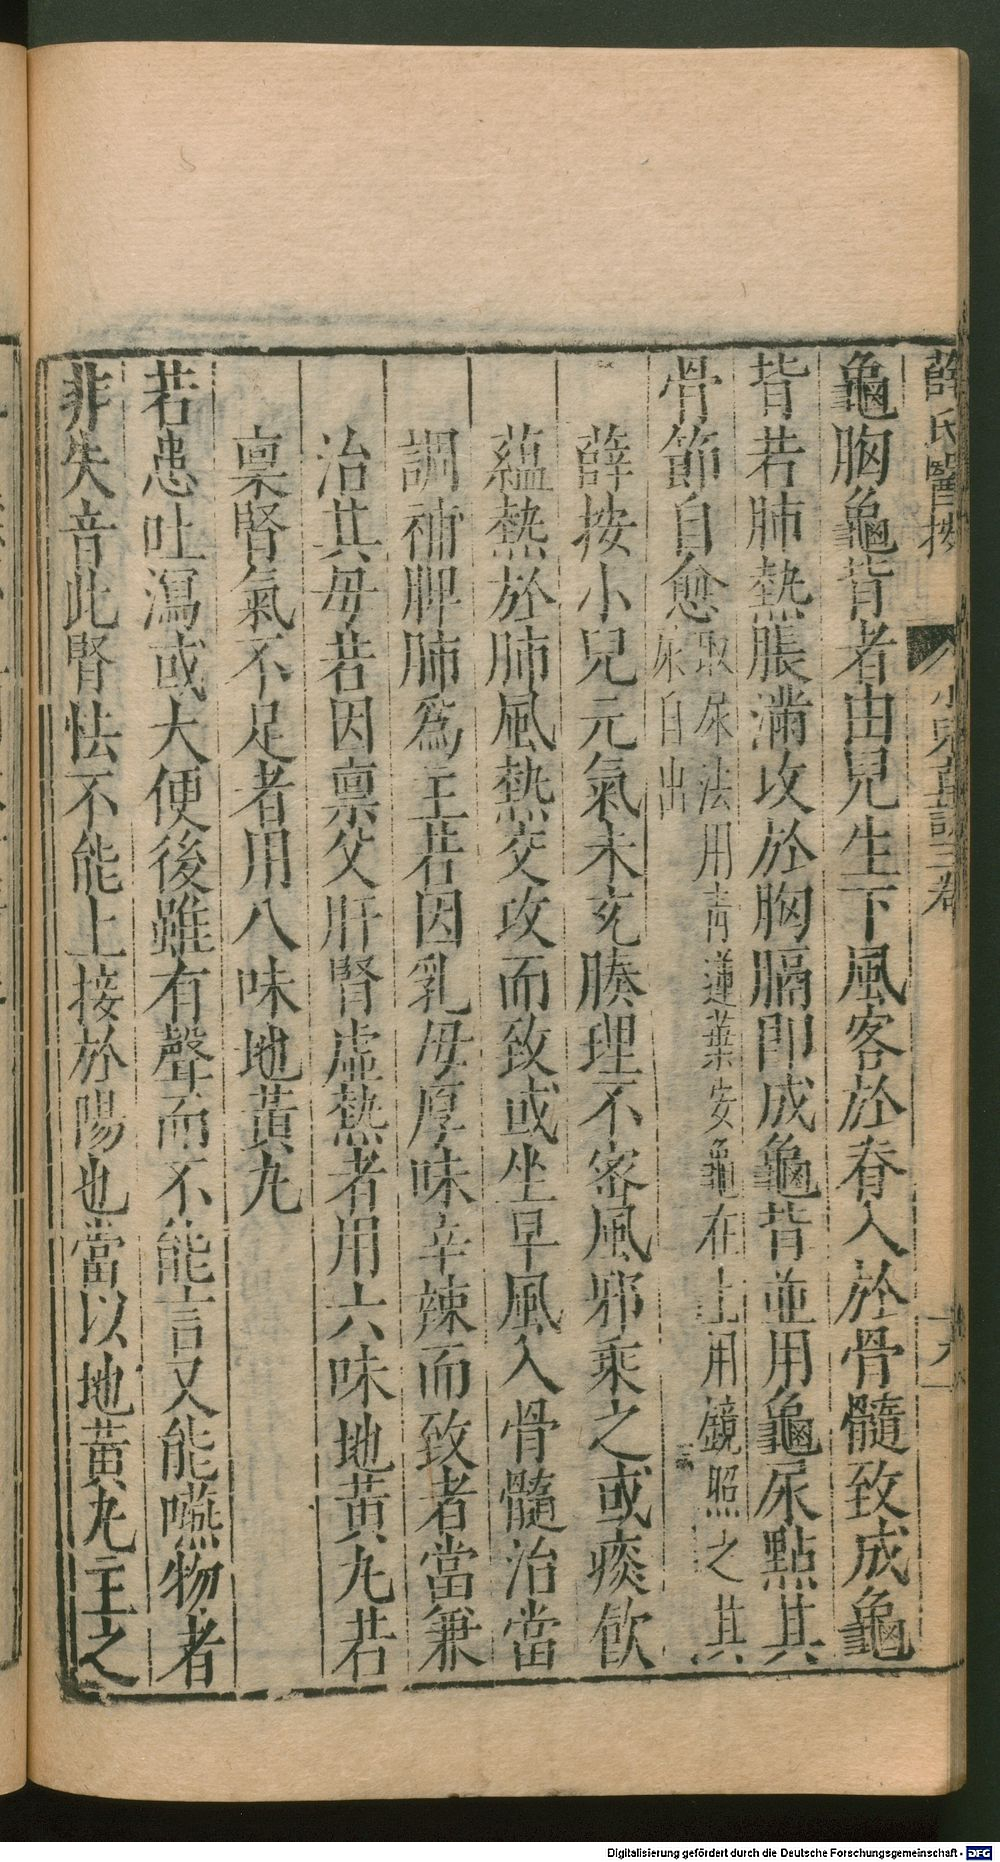 薛氏醫按 小兒直訣三卷
龜胸龜背者由兒生下風客於脊入於骨髓致成龜
背若肺熱脹滿攻於胸膈即成龜背並用龜尿點其
骨節自愈取尿法用青蓮葉安龜在上用鏡照之其
尿自出
薛按小兒元氣未充腠理不密風邪乘之或痰飲
蘊熱於肺風熱交攻而致或坐早風入骨髓治當
調補脾肺爲主若因乳母厚味辛辣而致者當兼
治其母若因禀父肝腎虛熱者用六味地黄丸若
禀腎氣不足者用八味地黄丸
若患吐瀉或大便後雖有聲而不能言又能嚥物者
非失音此腎怯不能上接於陽也當以地黄丸主之
Digitalisierung gefördert durch die Deutsche Forschungsgemeinschaft - DFG